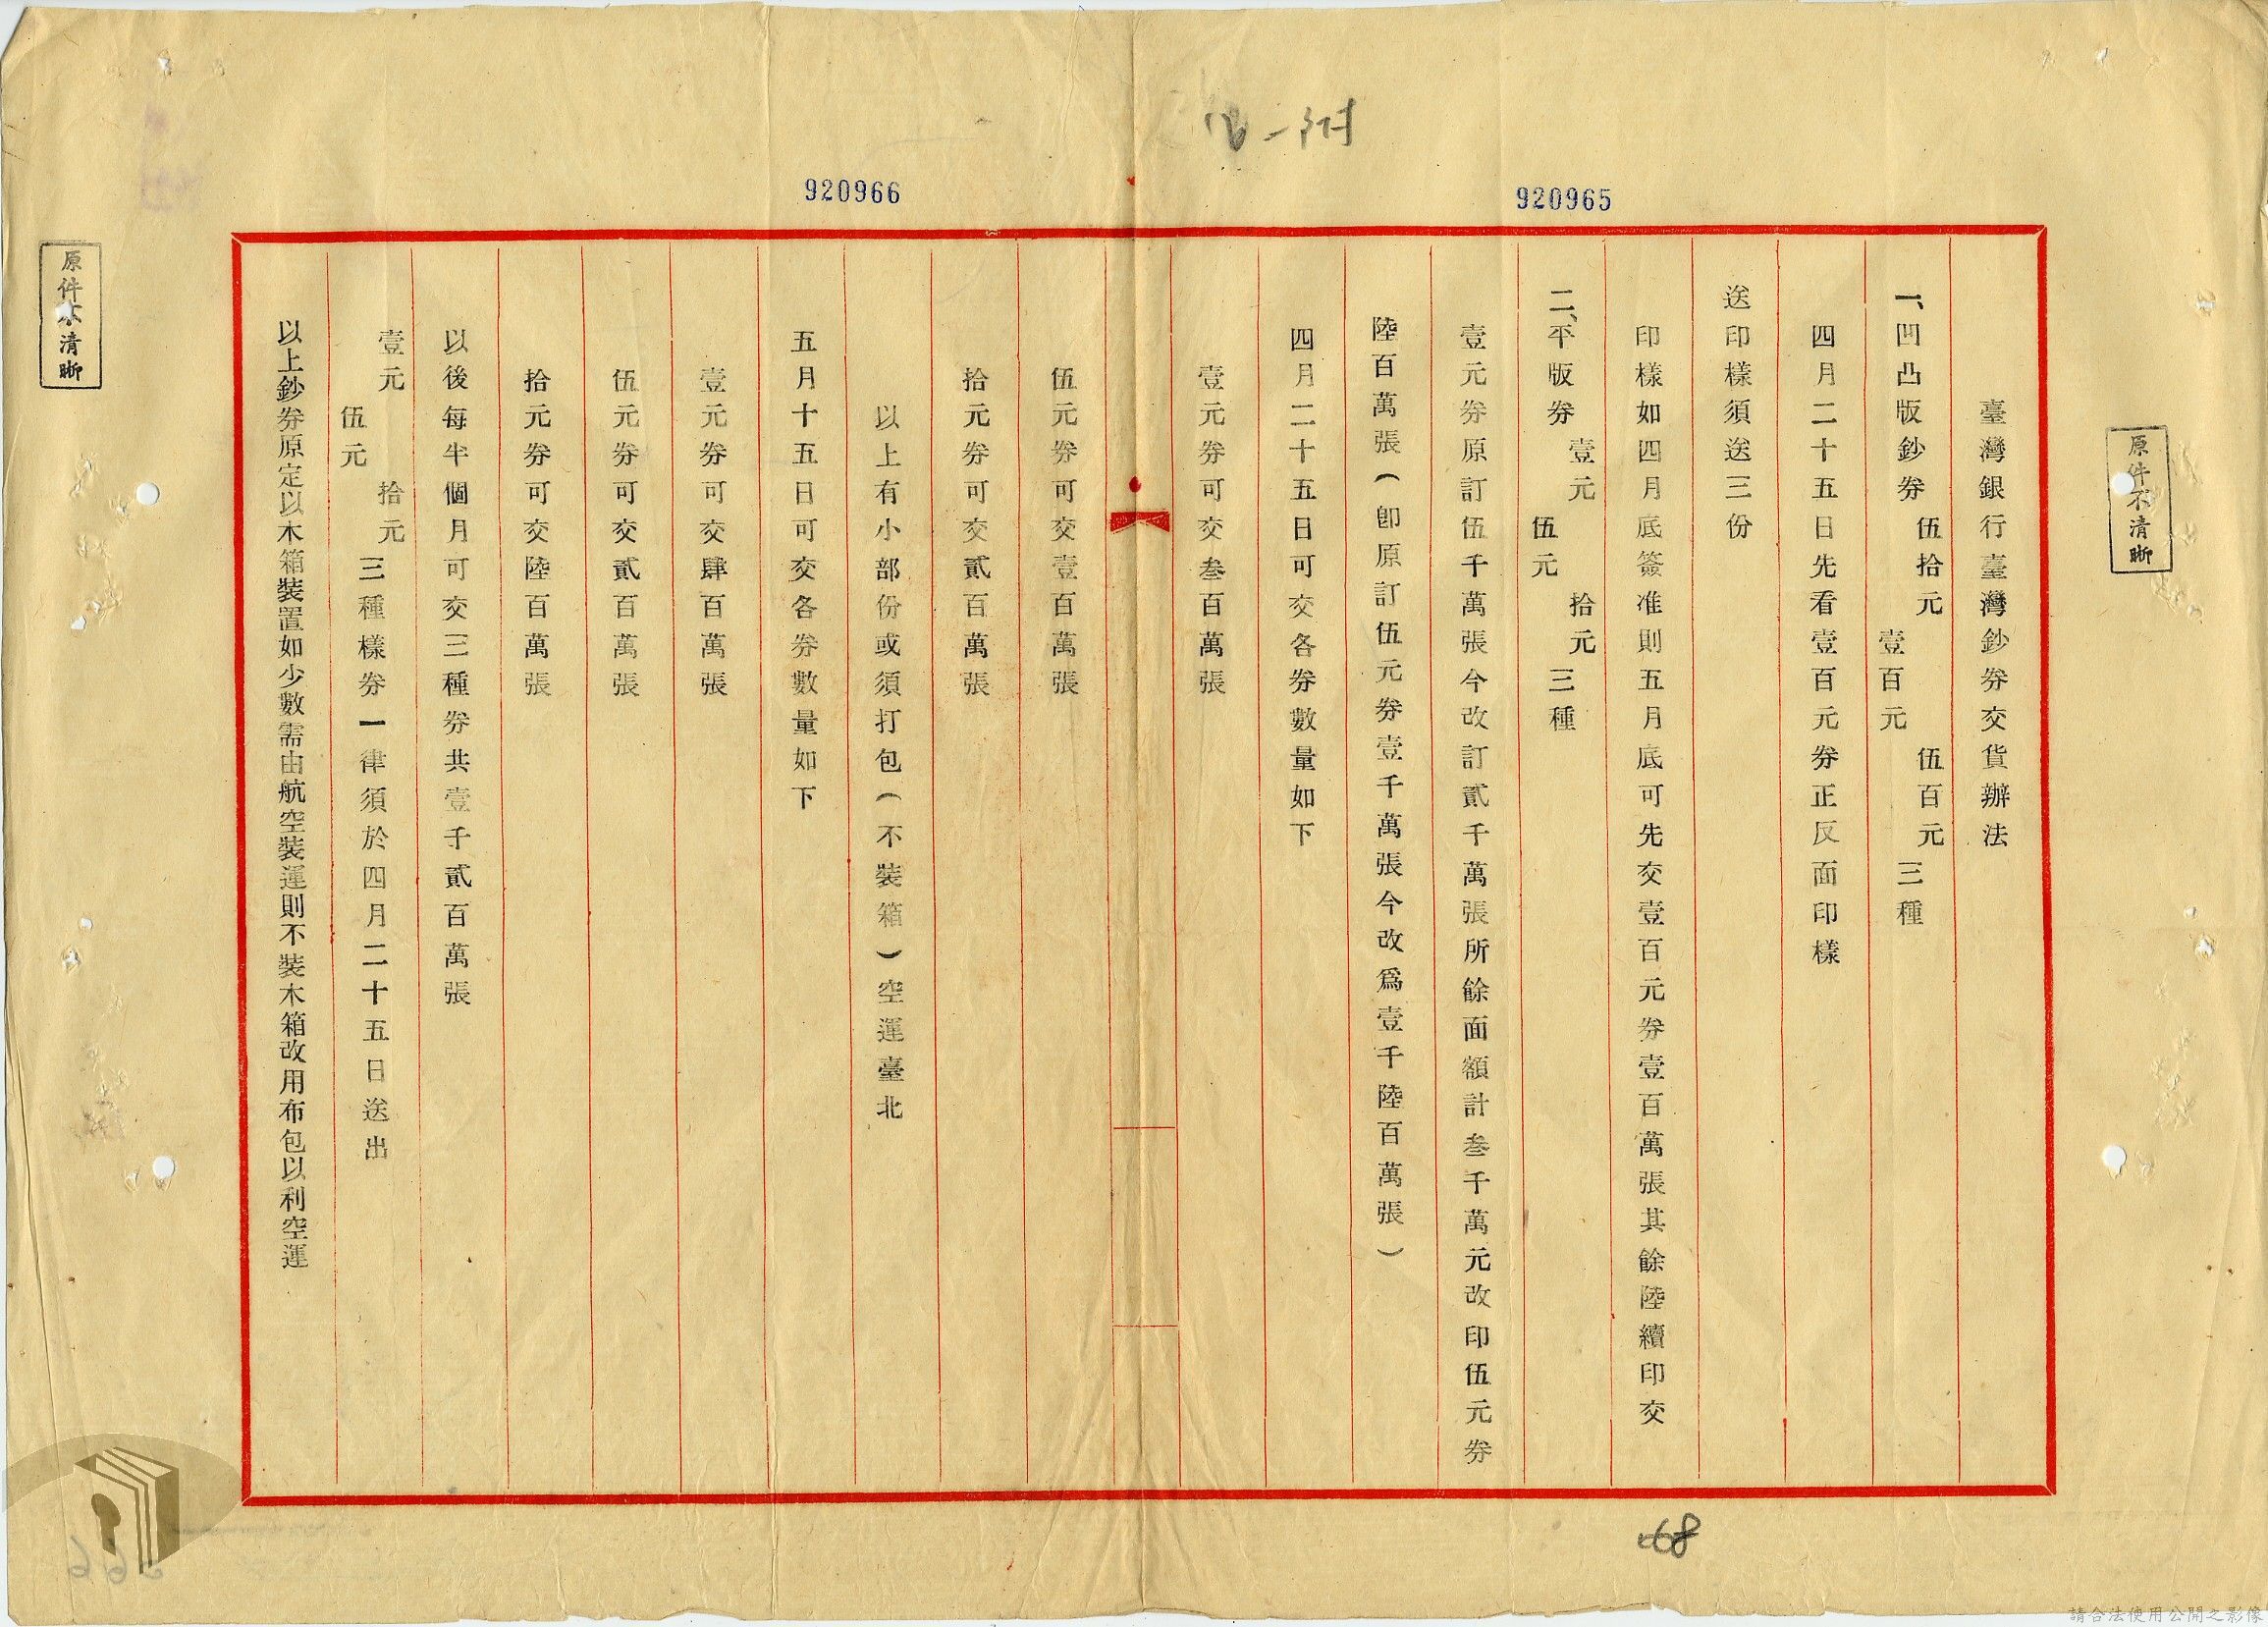 附一
920965
920966
臺灣銀行臺灣鈔券交貨辦法
一、凹凸版鈔券 伍拾元 壹百元 伍百元 三種
四月二十五日先看壹百元券正反面印樣
送印樣須送三份
印樣如四月底簽准則五月底可先交壹百元券壹百萬張其餘陸續印交
二、平版券 壹元 伍元 拾元 三種
壹元券原訂伍千萬張今改訂貳千萬張所餘面額計叁千萬元改印伍元券
陸百萬張(卽原訂伍元券壹千萬張今改爲壹千陸百萬張)
四月二十五日可交各券數量如下
壹元券可交叁百萬張
伍元券可交壹百萬張
拾元券可交貳百萬張
以上有小部份或須打包(不裝箱)空運臺北
五月十五日可交各券數量如下
壹元券可交肆百萬張
伍元券可交貳百萬張
拾元券可交陸百萬張
以後每半個月可交三種券共壹千貳百萬張
壹元 伍元 拾元 三種樣券一律須於四月二十五日送出
以上鈔券原定以木箱裝置如少數需由航空裝運則不裝木箱改用布包以利空運
原件不清晰
原件不清晰
68
請合法使用公開之影像